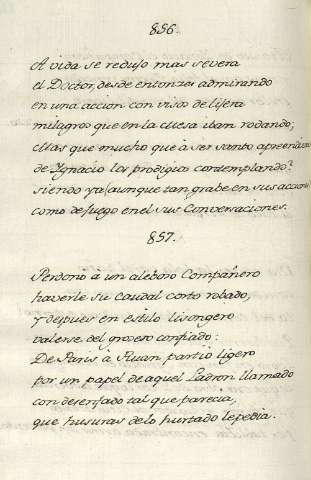 856.
A vida se redujo mas severa
el Doctor, desde entonzes admirando
en una accion con visos de lijera
milagros que en la Mesa iban rodando;
Mas que mucho que à ser santo aprendiera
de Ygnacio los prodigios contemplando?
siendo ya (aunque tan grabe en sus accion
como de fuego en el sus Conversaciones.
857.
Perdonò à un aleboso Compañero
haverle su Caudal corto robado,
y depues en estilo lisongero
valerse del grosero confiado:
De Paris à Ruan partio ligero
por un papel de aquel Ladron llamado
con desenfado tal que parecia,
que husuras de lo hurtado le pedia.